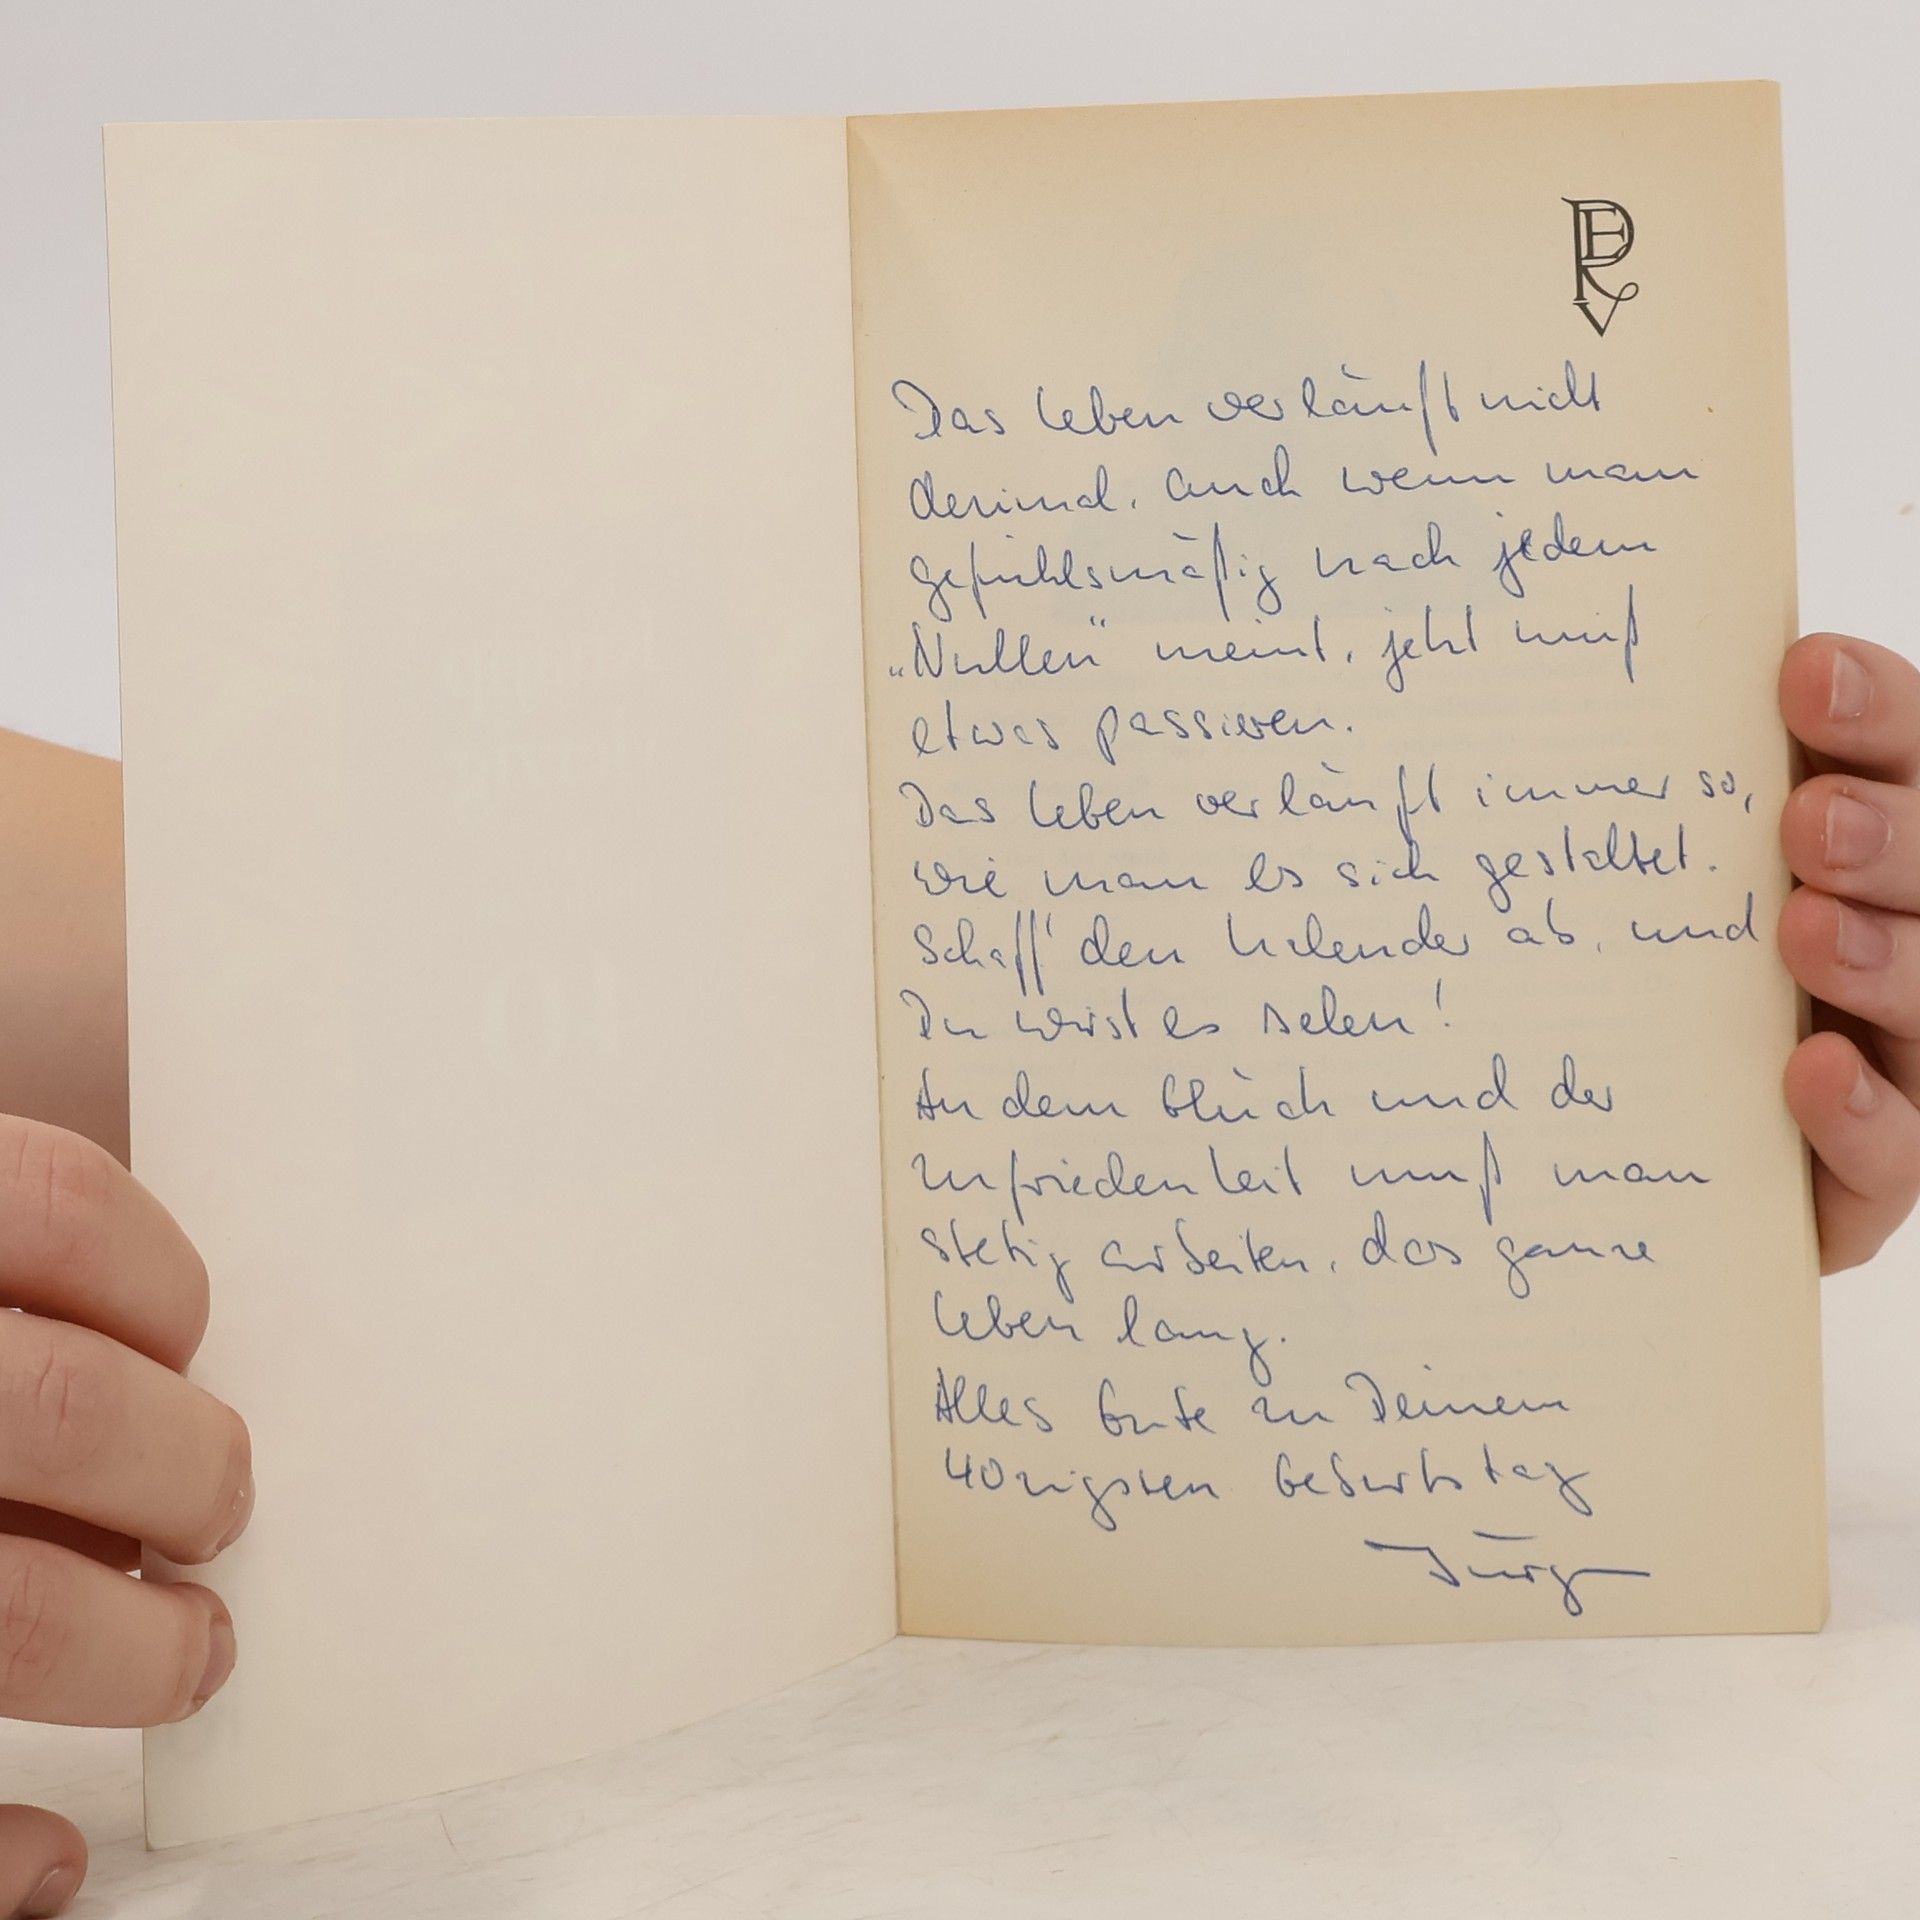 PERV
Das Leben verläuft nicht
dezimal, auch wenn man
gefühlsmäßig nach jedem
„Nullen“ meint, jetzt muß
etwas passieren.
Das Leben verläuft immer so,
wie man es sich gestaltet.
Schaff' den Kalender ab, und
Du wirst es sehen!
An dem Glück und der
Zufriedenheit muß man
stetig arbeiten, das ganze
Leben lang.
Alles Gute zu Deinem
40zigsten Geburtstag
Jürg